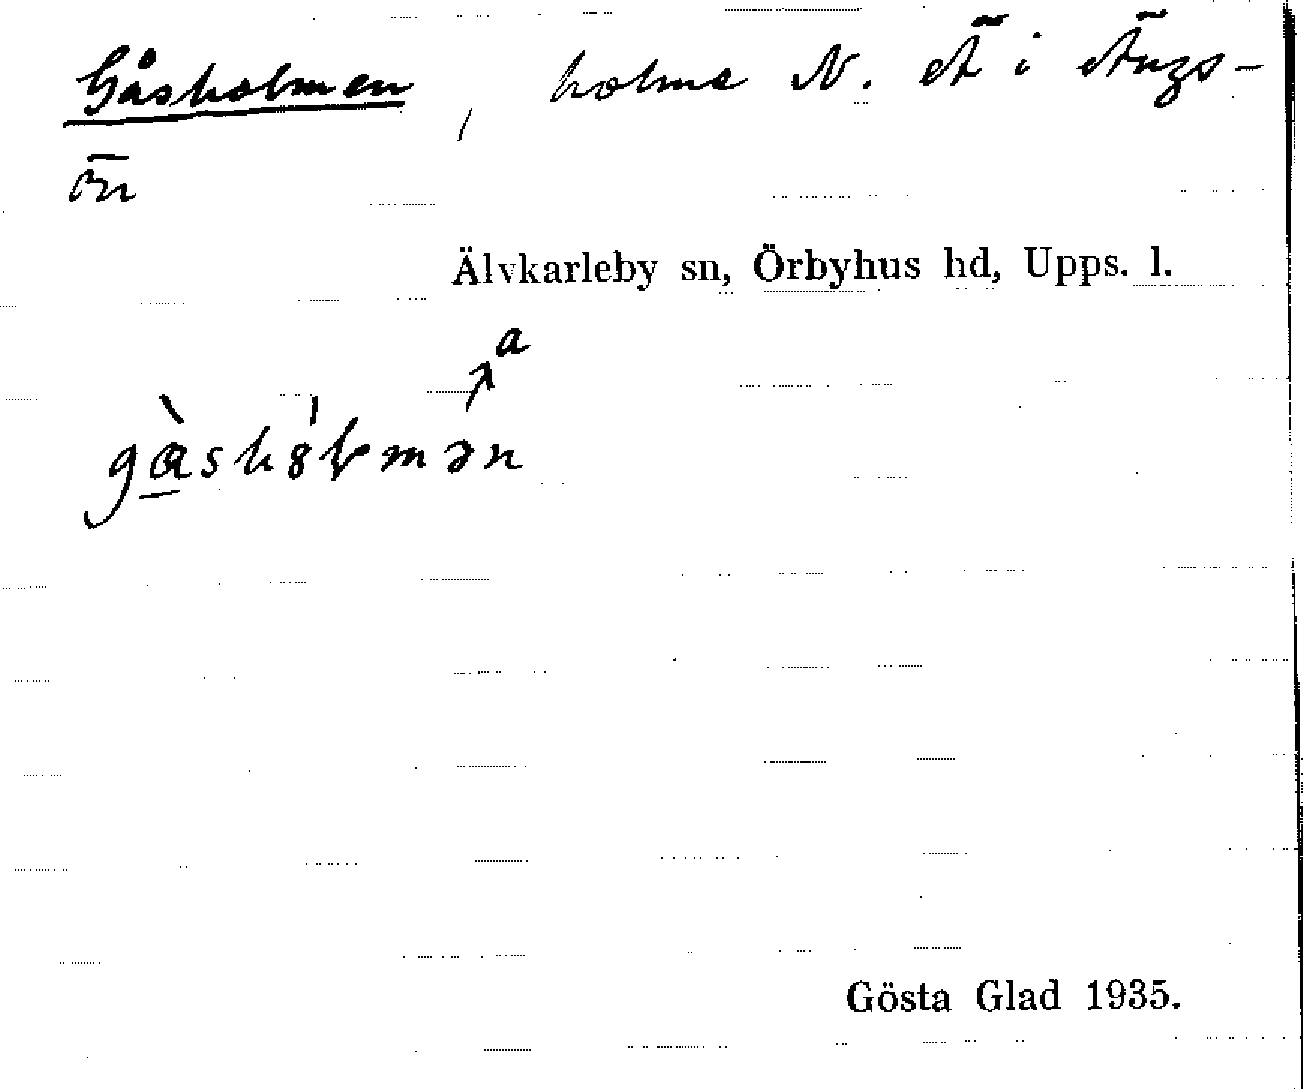 Gåsholmen, holme N. Ä i Ängs-
ön
Älvkarleby sn, Örbyhus hd, Upps. l.
a
gàshólmən
Gösta Glad 1935.